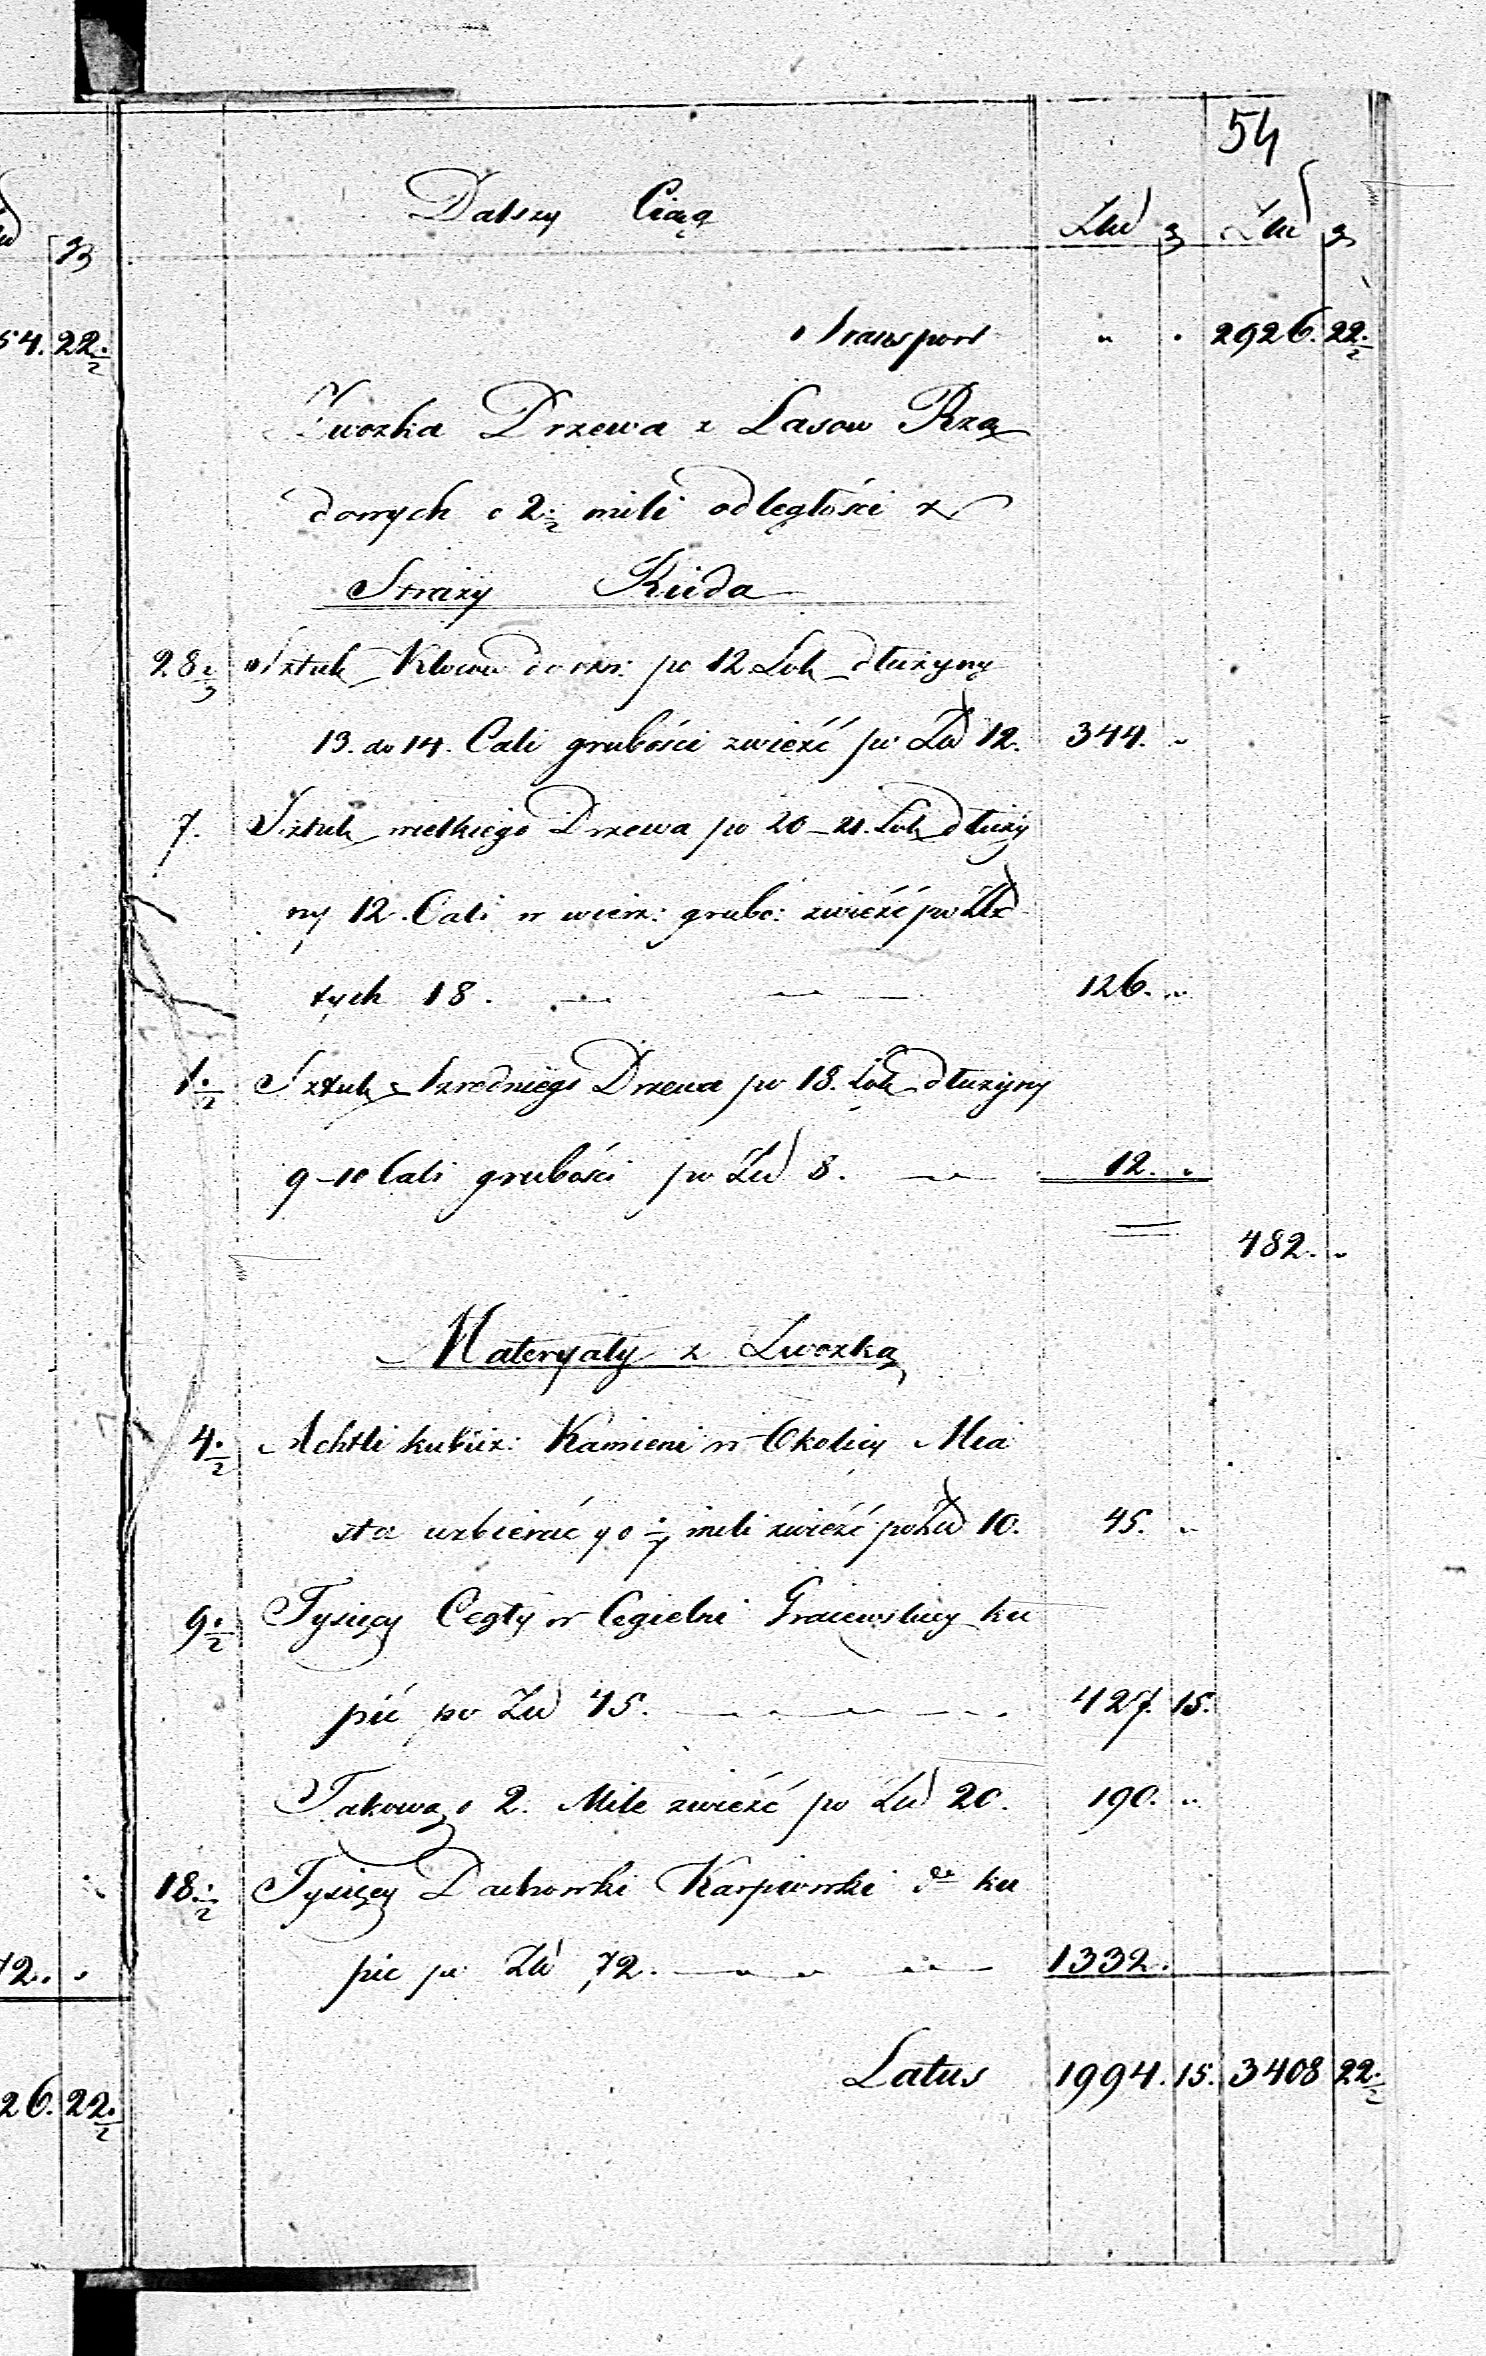 54
Dalszy Ciąg Złd g Złd g
54. 22.½ Transport „ . 2926. 22.½
Zwozka Drzewa z Lasow Rzą
dowych o 2.½ mili odległości z
Strazy Ruda
28.⅔ Sztuk Klocow po 12 Łok dłużyny
13. do 14. Cali grubości zwieźć po Złd 12. 344. „
7. Sztuk wielkiego Drzewa po 20–21. Łok dłuży
ny 12. Cali w wierz: grubo: zwieźć po Zło
tych 18. 126. „
1.½ Sztuk Szredniego Drzewa po 18. Łok dłużyny
9–10 Cali grubości po Złd 8. 12. „
482. „
Materyały z Zwozką
4.½ Achtli kubicz: Kamieni w Okolicy Mia
sta uzbierać y o mili zwieźć po Złd 10. 45. „
9.½ Tysięcy Cegły w Cegielni Graiewskiey ku
pić po Złd 45. 427. 15.
Takową o 2. Mile zwieźć po Złd 20. 190. „
18.½ Tysięcy Dachowki Karpiowki do ku
pić po Złd 72. 1332.
Latus 1994. 15. 3408 22.½
26. 22.½